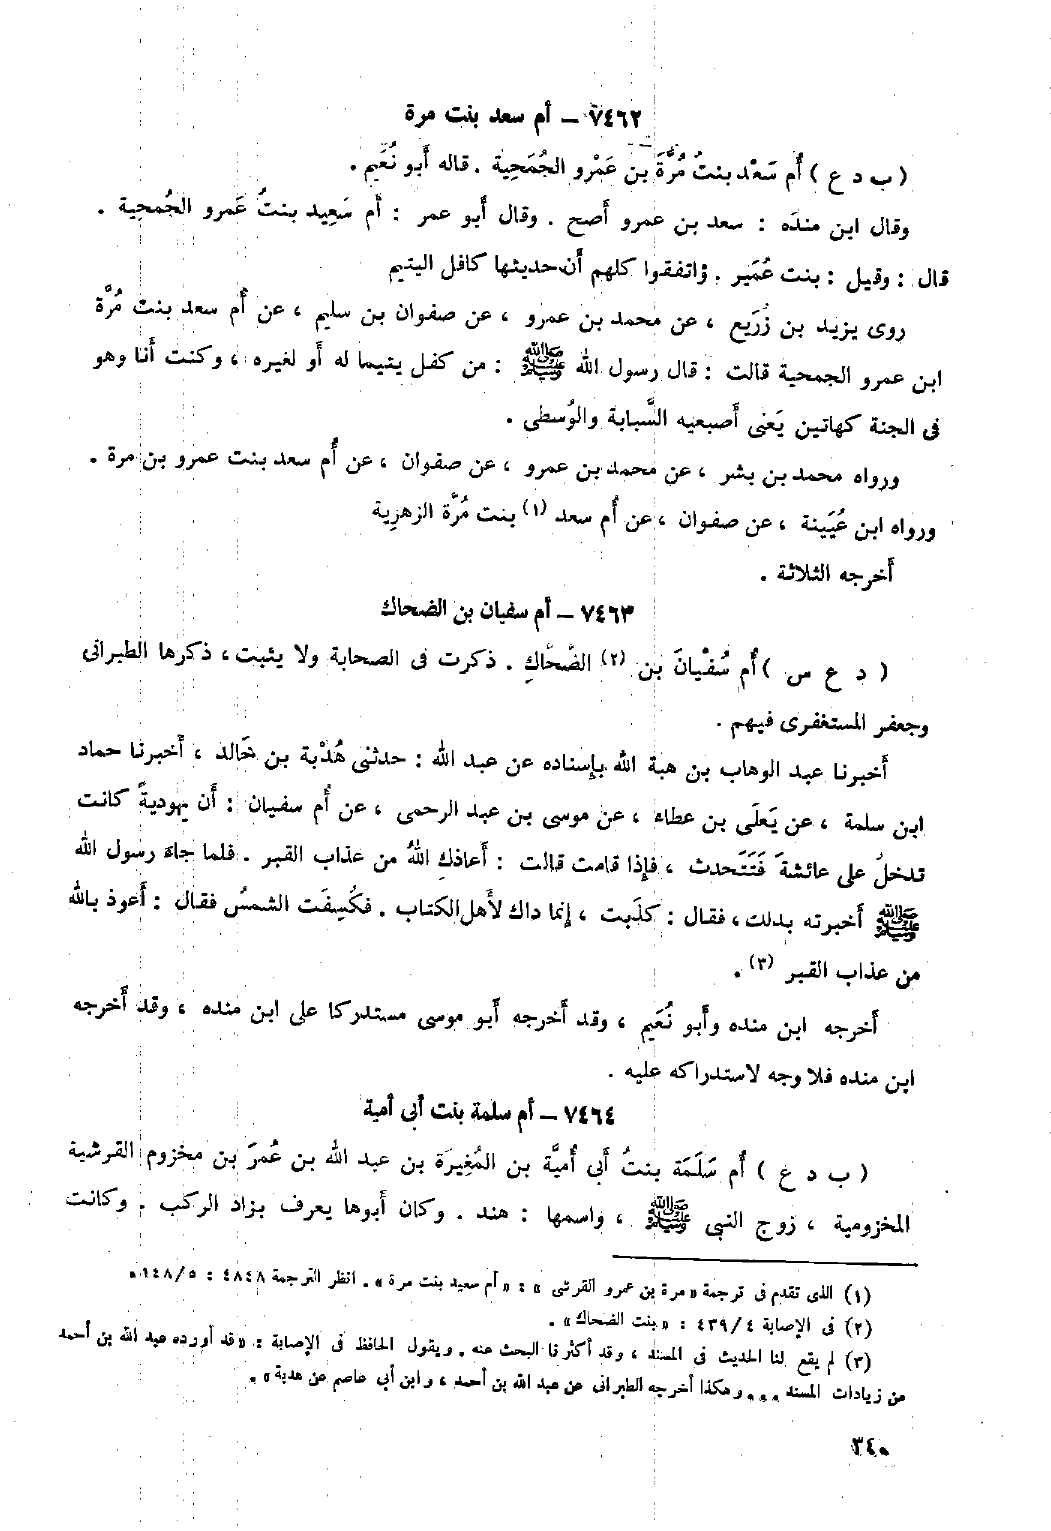 ٧٤٦٢ – أم سعد بنت مرة
( ب د ع ) أُم سَعْد بنتُ مُرَّةَ بن عَمْرو الجُمَحِية . قاله أَبو نُعَيم .
وقال ابن منده : سعد بن عمرو أصح . وقال أَبو عمر : أُم سَعِيد بنتُ عَمرو الجُمحِية .
قال : وقيل : بنت عُمَير . واتفقوا كلهم أَن حديثها كافل اليتيم
روى يزيد بن زُرَيع ، عن محمد بن عمرو ، عن صفوان بن سليم ، عن أُم سعد بنت مُرَّة
ابن عمرو الجمحية قالت : قال رسول الله ﷺ : من كفل يتيما له أَو لغيره ، وكنت أَنا وهو
فى الجنة كهاتين يَعْنى أَصبعيه السَّبابة والوُسطى .
ورواه محمد بن بشر ، عن محمد بن عمرو ، عن صفوان ، عن أُم سعد بنت عمرو بن مرة .
ورواه ابن عُيَينة ، عن صفوان ، عن أُم سعد (١) بنت مُرَّة الزهرية
أَخرجه الثلاثة .
٧٤٦٣ – أم سفيان بن الضحاك
( د ع س ) أُم سُفْيانَ بن (٢) الضَّحَّاكِ . ذكرت فى الصحابة ولا يثبت ، ذكرها الطبرانى
وجعفر المستغفرى فيهم .
أَخبرنا عبد الوهاب بن هبة الله بإِسناده عن عبد الله : حدثنى هُدْبة بن خَالد ، أَخبرنا حماد
ابن سلمة ، عن يَعلَى بن عطاء ، عن موسى بن عبد الرحمى ، عن أُم سفيان : أَن يهوديةً كانت
تدخلُ على عائشةَ فَتَتَحدث ، فإِذا قامت قالت : أَعاذكِ اللهُ من عذاب القبر . فلما جاءَ رسول الله
ﷺ أَخبرته بذلك ، فقال : كذَبت ، إِنما داك لأَهل الكتاب . فكُسِفَت الشمسُ فقال : أَعوذ بالله
من عذاب القبر (٣) .
أَخرجه ابن منده وأَبو نُعَيم ، وقد أَخرجه أَبو موسى مستدركا على ابن منده ، وقد أَخرجه
ابن منده فلا وجه لاستدراكه عليه .
٧٤٦٤ – أم سلمة بنت أبى أمية
( ب د ع ) أُم سَلَمَة بنتُ أَبى أُميَّة بن المُغِيرَة بن عبد الله بن عُمرَ بن مخزوم القرشية
المخزومية ، زوج النبى ﷺ ، واسمها : هند . وكان أَبوها يعرف بزاد الركب . وكانت
(١) الذى تقدم فى ترجمة « مرة بن عمرو القرشى » : « أم سعيد بنت مرة » . انظر الترجمة ٤٨٤٨ : ٥/١٤٨ .
(٢) فى الإصابة ٤/٤٣٩ : « بنت الضحاك » .
(٣) لم يقع لنا الحديث فى المسند ، وقد أكثرنا البحث عنه . ويقول الحافظ فى الإصابة : « قد أورده عبد الله بن أحمد
من زيادات المسند . . . وهكذا أخرجه الطبرانى عن عبد الله بن أحمد ، وابن أبى عاصم عن هدبة » .
٣٤٠